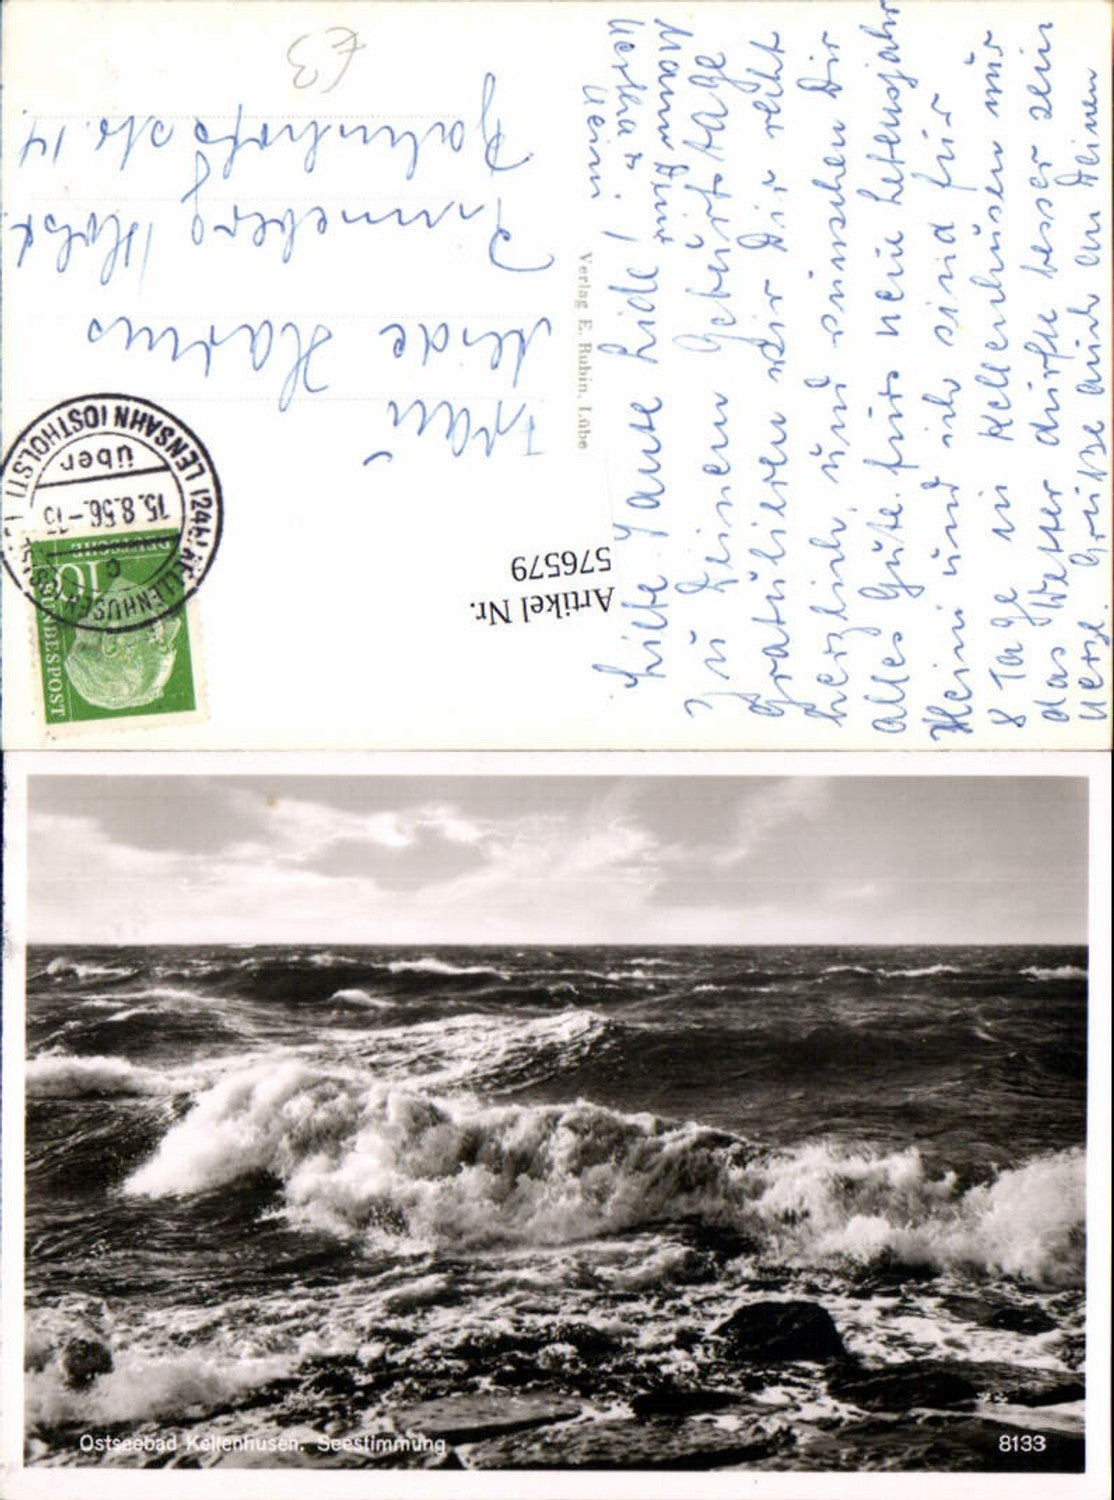 £3
Frau
Lide Harms
Pinneberg /Holst.
Bahnhofstr. 14
Liebe Tante Lide!
Zu Deinem Geburtstage
gratulieren wir Dir recht
herzlich und wünschen Dir
alles Gute fürs neue Lebensjahr
Heini und ich sind für
8 Tage in Kellenhusen nur
das Wetter dürfte besser sein
Herzl. Grüße auch an Deinen
Mann von
Heini
Verlag E. Rubin, Lübe
(24b) KELLENHUSEN
über
LENSAHN (OSTHOLST)
15.8.56.-
c
DEUTSCHE BUNDESPOST
10
Artikel Nr.
576579
Ostseebad Kellenhusen. Seestimmung
8133